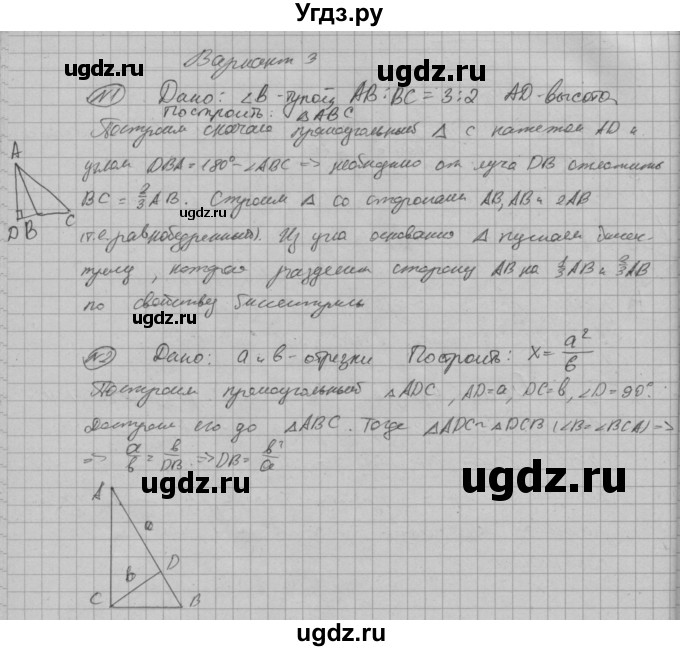 Угдз.ру
Вариант 3
№1 Дано: ∠B - тупой, AB : BC = 3 : 2 AD - высота,
Построить: △ABC
Построим сначала прямоугольный △ с катетом AD и
углом DBA = 180° - ∠ABC => необходимо от луча DB отложить
BC = 2/3 AB. Строим △ со сторонами AB, AB и 2AB
(т.е. равнобедренный). Из угла основания △ пускаем биссек-
трису, которая разделит сторону AB на 1/3 AB и 2/3 AB
по свойству биссектрисы
A
D B C
№2 Дано: a и b - отрезки Построить: x = a²/b
Построим прямоугольный △ADC, AD=a, DC=b, ∠D=90°.
Достроим его до △ABC. Тогда △ADC ~ △DCB (∠B=∠BCA) =>
=> a/b = b/DB => DB = b²/a
A
a
b
D
C
B
ugdz.ru
ugdz.ru
ugdz.ru
ugdz.ru
ugdz.ru
ugdz.ru
ugdz.ru
ugdz.ru
ugdz.ru
ugdz.ru
ugdz.ru